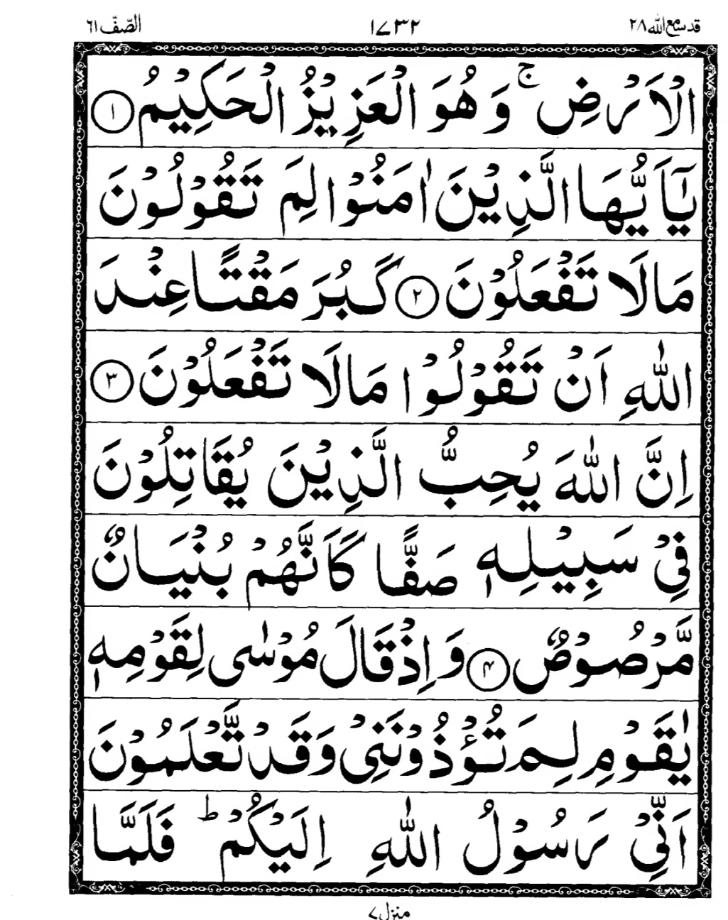 قد سمع الله ٢٨ ١٧٣٢ الصّفّ ٦١
الْاَرْضِ ۚ وَ هُوَ الْعَزِيْزُ الْحَكِيْمُ ١
يٰۤاَيُّهَا الَّذِيْنَ اٰمَنُوْا لِمَ تَقُوْلُوْنَ
مَا لَا تَفْعَلُوْنَ ٢ كَبُرَ مَقْتًا عِنْدَ
اللّٰهِ اَنْ تَقُوْلُوْا مَا لَا تَفْعَلُوْنَ ٣
اِنَّ اللّٰهَ يُحِبُّ الَّذِيْنَ يُقَاتِلُوْنَ
فِيْ سَبِيْلِهٖ صَفًّا كَاَنَّهُمْ بُنْيَانٌ
مَّرْصُوْصٌ ۴ وَ اِذْ قَالَ مُوْسٰى لِقَوْمِهٖ
يٰقَوْمِ لِمَ تُؤْذُوْنَنِيْ وَ قَدْ تَّعْلَمُوْنَ
اَنِّيْ رَسُوْلُ اللّٰهِ اِلَيْكُمْ ؕ فَلَمَّا
منزل ٧